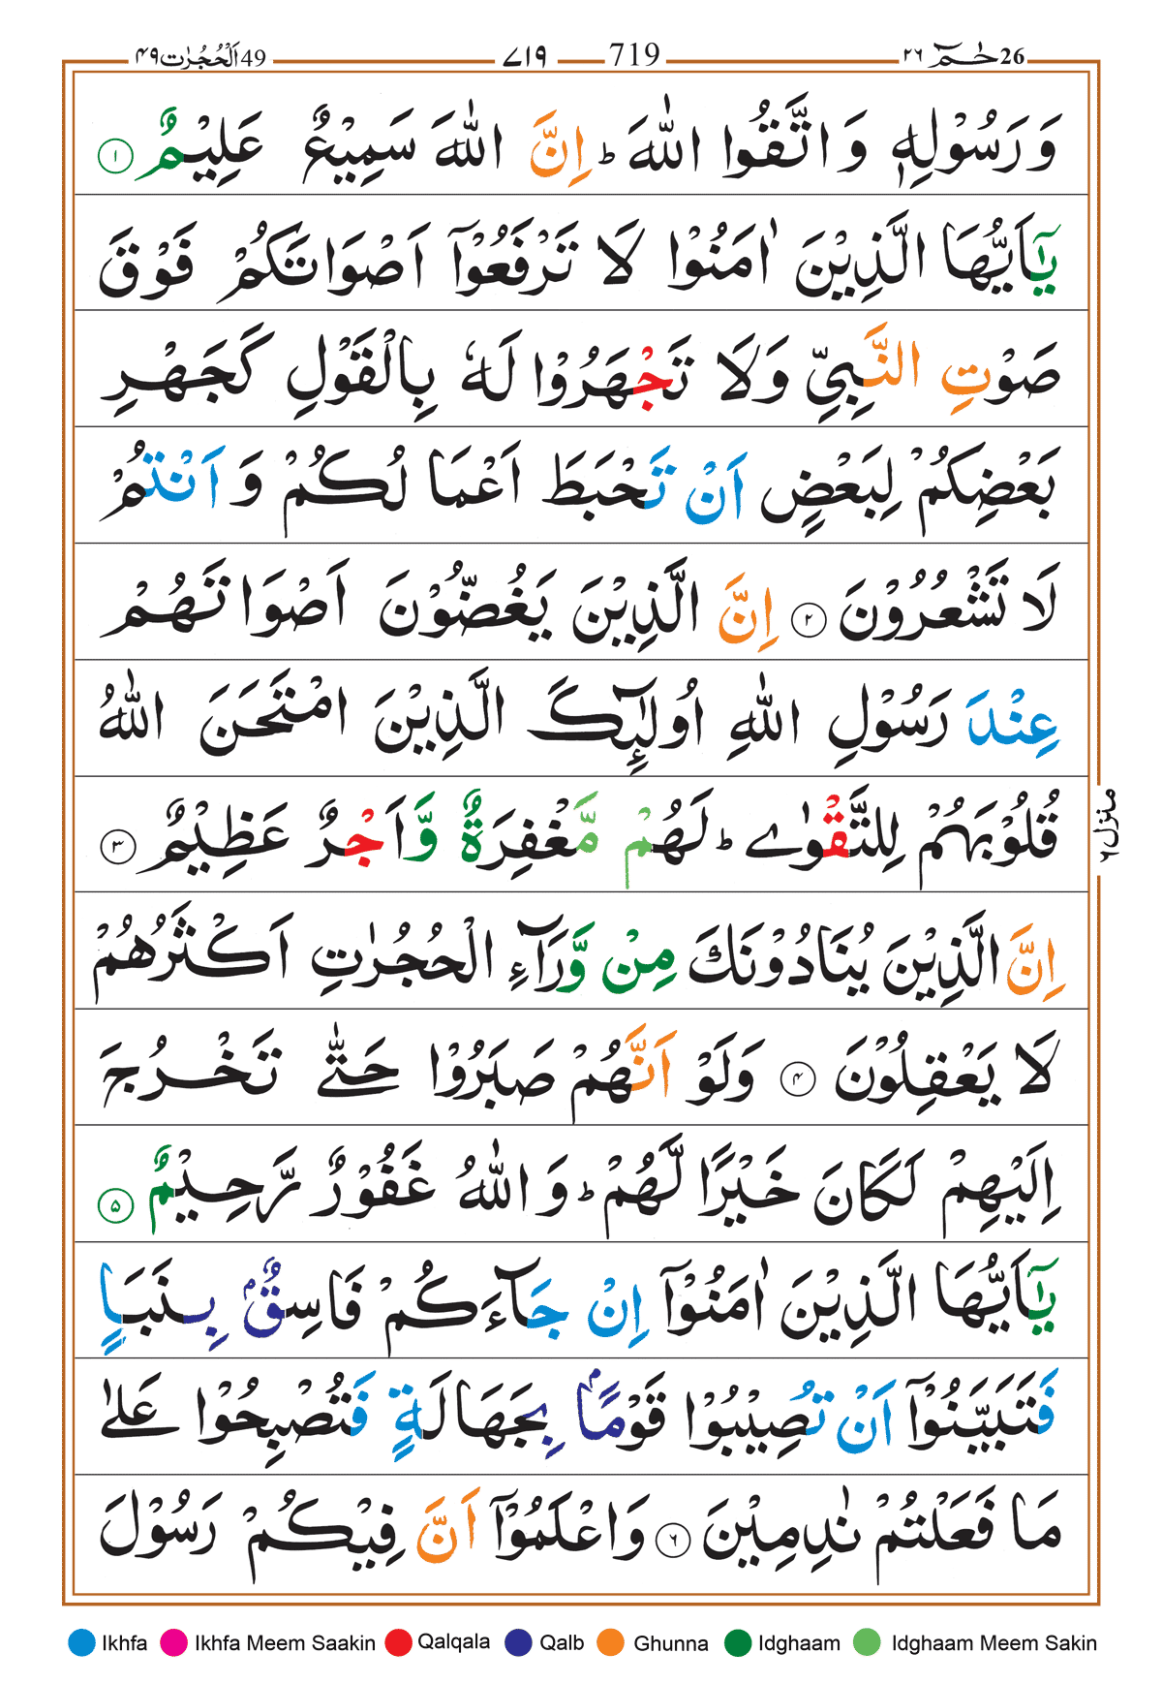 49 اَلْحُجُرٰت ۴۹ ۷۱۹ 719 حٰمٓ ۲۶ 26
وَرَسُوْلِهٖ وَاتَّقُوا اللّٰهَ ؕ اِنَّ اللّٰهَ سَمِيْعٌ عَلِيْمٌ ۱
يٰۤاَيُّهَا الَّذِيْنَ اٰمَنُوْا لَا تَرْفَعُوْۤا اَصْوَاتَكُمْ فَوْقَ
صَوْتِ النَّبِيِّ وَلَا تَجْهَرُوْا لَهٗ بِالْقَوْلِ كَجَهْرِ
بَعْضِكُمْ لِبَعْضٍ اَنْ تَحْبَطَ اَعْمَالُكُمْ وَاَنْتُمْ
لَا تَشْعُرُوْنَ ۲ اِنَّ الَّذِيْنَ يَغُضُّوْنَ اَصْوَاتَهُمْ
عِنْدَ رَسُوْلِ اللّٰهِ اُولٰٓئِكَ الَّذِيْنَ امْتَحَنَ اللّٰهُ
قُلُوْبَهُمْ لِلتَّقْوٰى ؕ لَهُمْ مَّغْفِرَةٌ وَّاَجْرٌ عَظِيْمٌ ۳
اِنَّ الَّذِيْنَ يُنَادُوْنَكَ مِنْ وَّرَآءِ الْحُجُرٰتِ اَكْثَرُهُمْ
لَا يَعْقِلُوْنَ ۴ وَلَوْ اَنَّهُمْ صَبَرُوْا حَتّٰى تَخْرُجَ
اِلَيْهِمْ لَكَانَ خَيْرًا لَّهُمْ ؕ وَاللّٰهُ غَفُوْرٌ رَّحِيْمٌ ۵
يٰۤاَيُّهَا الَّذِيْنَ اٰمَنُوْۤا اِنْ جَآءَكُمْ فَاسِقٌۢ بِنَبَاٍ
فَتَبَيَّنُوْۤا اَنْ تُصِيْبُوْا قَوْمًاۢ بِجَهَالَةٍ فَتُصْبِحُوْا عَلٰى
مَا فَعَلْتُمْ نٰدِمِيْنَ ۶ وَاعْلَمُوْۤا اَنَّ فِيْكُمْ رَسُوْلَ
منزل ۶
Ikhfa Ikhfa Meem Saakin Qalqala Qalb Ghunna Idghaam Idghaam Meem Sakin